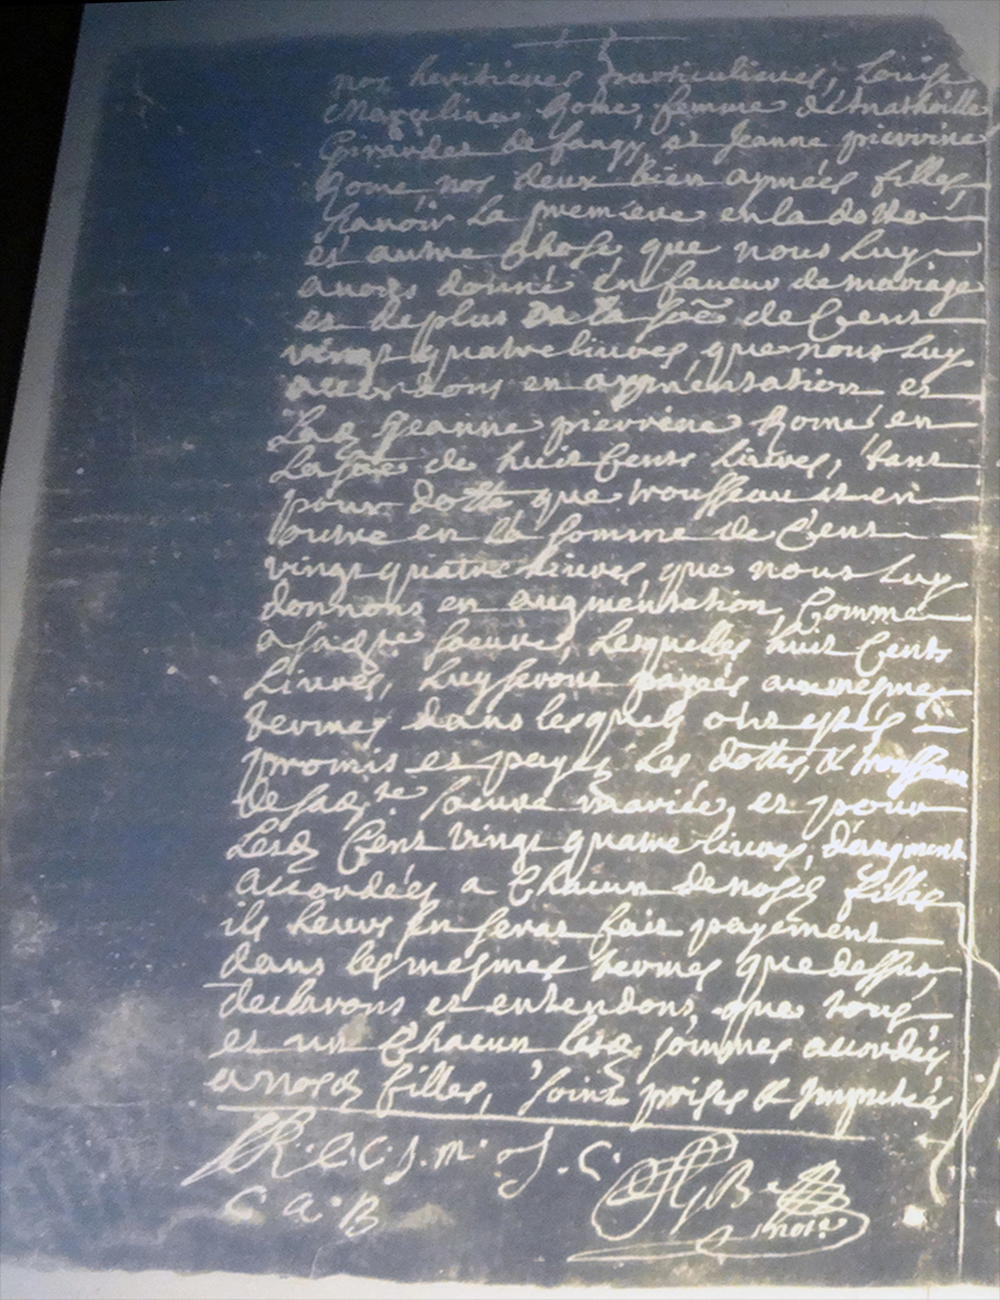 nos heritieres particulieres, Louise
femme
et Jeanne pierrine
Gome nos deux bien aymées filles,
Scavoir La premiere en la dotte
et autre chose, que nous Luy
avons donné en faveur de mariage
et de plus de la so͞e de Cent
vingt quatre livres, que nous Luy
accordons en augmentation et
Lad Jeanne pierrine Gome en
La so͞e de huit Cents livres, tant
pour dotte que trousseau et en
outre en la somme de Cent
vingt quatre Livres, que nous Luy
donnons en augmentation, Comme
a sadte soeure, Lesquelles huit Cents
Livres, Luy seront payées aux mesmes
termes dans lesquels ont estés
promis et payez Les dottes, & trousseau
de sadte soeure mariée, et pour
Lesd Cent vingt quatre livres, d'augment
accordées a Chacun de nosd filles
ils Leurs en seras fait payement
dans les mesmes termes que dessus,
declarons et entendons, que tous
et un Chacun lesd sommes accordées
a nosd filles, soint prises & imputées
R. C. C. J. M. J. C.
C A B
not.e